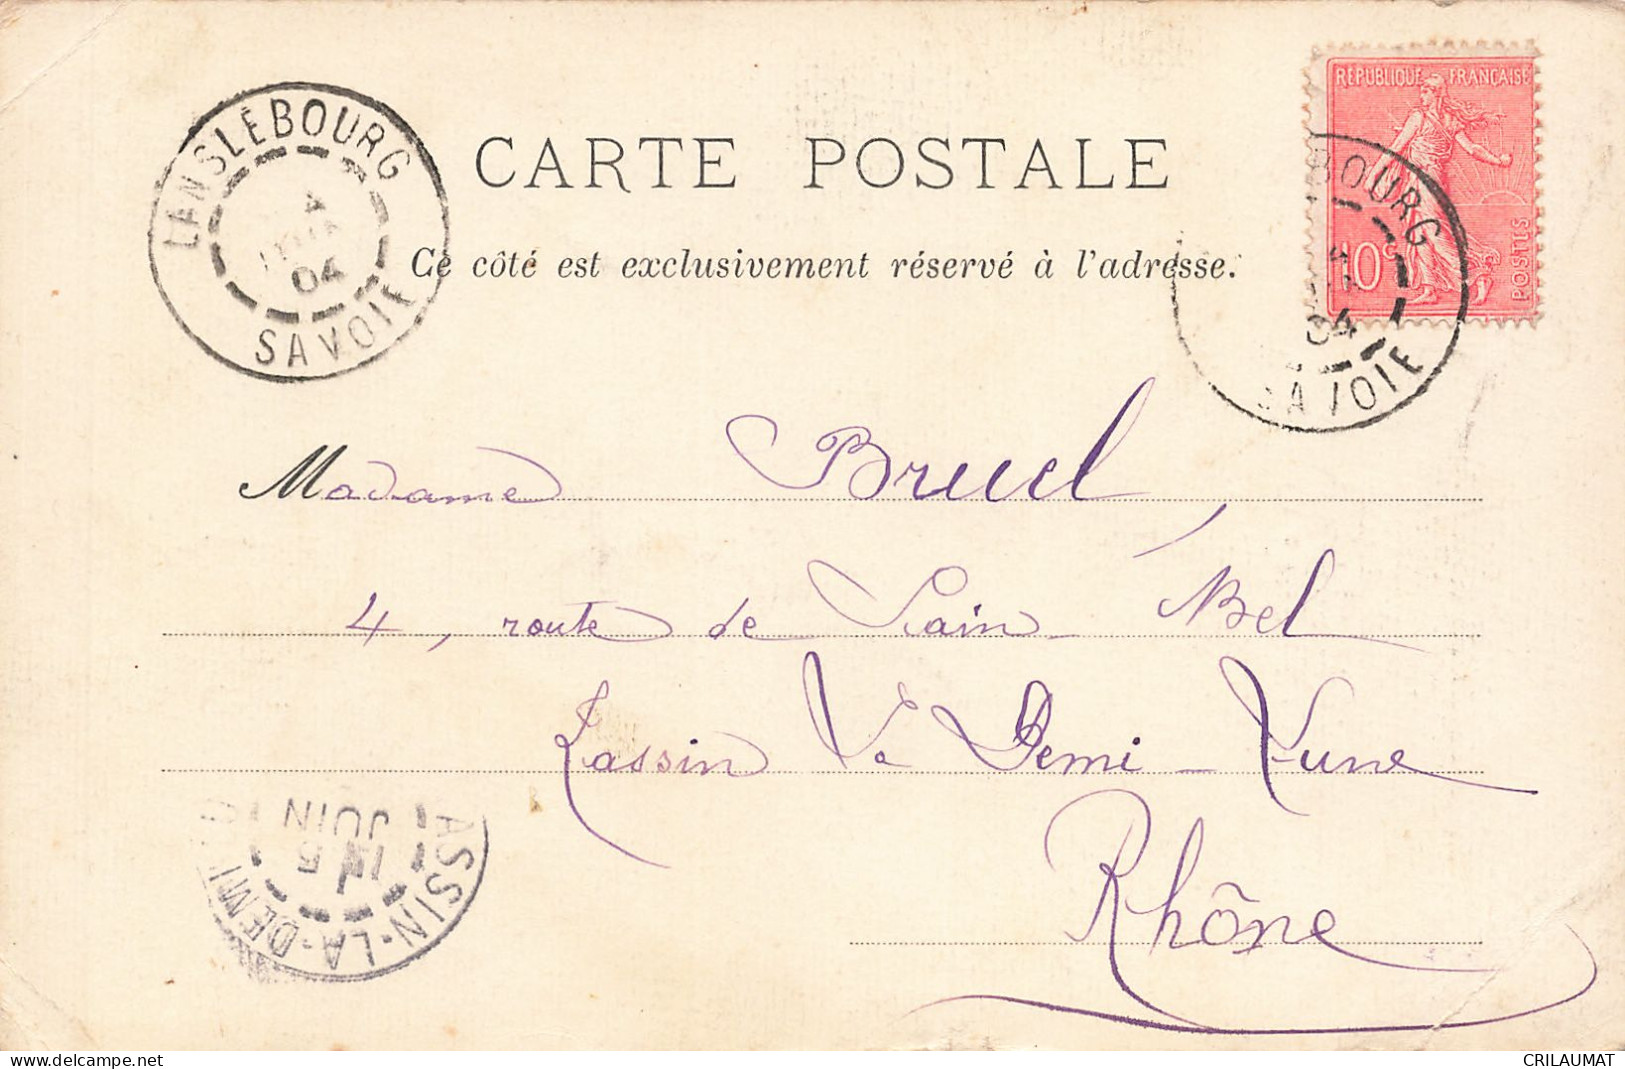 LANSLEBOURG
04
SAVOIE
CARTE POSTALE
Ce côté est exclusivement réservé à l'adresse.
RÉPUBLIQUE FRANÇAISE
10c
POSTES
BOURG
04
SAVOIE
Madame Bruel,
4, route de Sain-Bel
Tassin La Demi-Lune
Rhône
JUIN
ASSIN-LA-DEMI
www.delcampe.net
CRILAUMAT